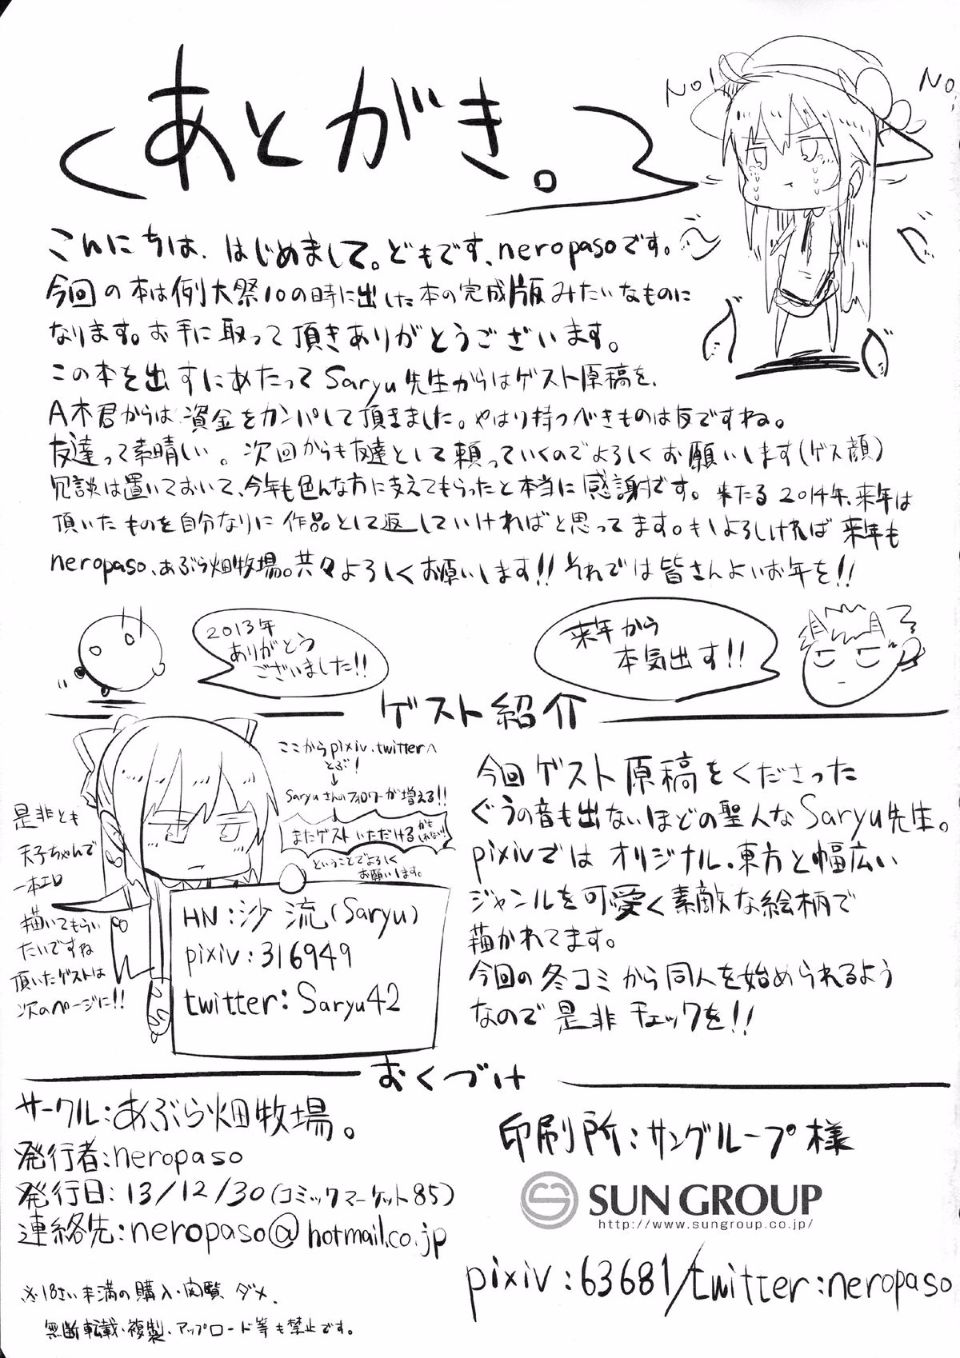 あとがき。
No!
No!
こんにちは、はじめまして。どもです、neropasoです。
今回の本は例大祭10の時に出した本の完成版みたいなものに
なります。お手に取って頂きありがとうございます。
この本を出すにあたってSaryu先生からはゲスト原稿を、
A木君からは資金をカンパして頂きました。やはり持つべきものは友ですね。
友達って素晴しい。次回からも友達として頼っていくのでよろしくお願いします(ゲス顔)
冗談は置いておいて、今年も色んな方に支えてもらったと本当に感謝です。来たる2014年、来年は
頂いたものを自分なりに作品として返していければと思ってます。もしよろしければ来年も
neropaso、あぶら畑牧場。共々よろしくお願いします!!それでは皆さんよいお年を!!
2013年
ありがとう
ございました!!
来年から
本気出す!!
ゲスト紹介
ここからpixiv、twitterへ
とぶ!
↓
Saryuさんのフォロワーが増える!!
↓
またゲストいただけるかもしれない!
ということでよろしく
お願いします。
是非とも
天子ちゃんで
一本エロ
描いてもらい
たいですね
頂いたゲストは
次のページに!!
HN:沙流(Saryu)
pixiv:316949
twitter:Saryu42
今回ゲスト原稿をくださった
ぐうの音も出ないほどの聖人なSaryu先生。
pixivではオリジナル、東方と幅広い
ジャンルを可愛く素敵な絵柄で
描かれてます。
今回の冬コミから同人を始められるよう
なので是非チェックを!!
おくづけ
サークル:あぶら畑牧場。
発行者:neropaso
発行日:13/12/30(コミックマーケット85)
連絡先:neropaso@hotmail.co.jp
※18さい未満の購入・閲覧ダメ
無断転載・複製・アップロード等も禁止です。
印刷所:サングループ様
SUN GROUP
http://www.sungroup.co.jp/
pixiv:63681/twitter:neropaso